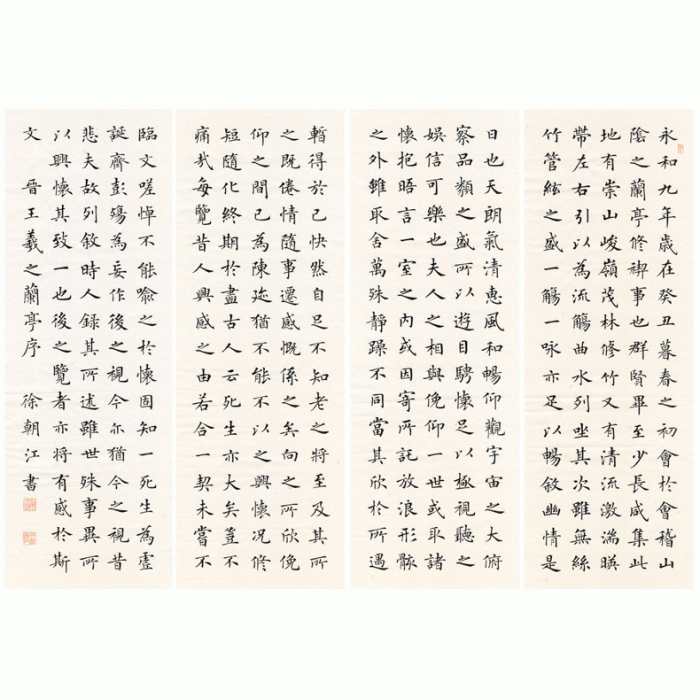 永和九年歲在癸丑暮春之初會於會稽山
陰之蘭亭修禊事也群賢畢至少長咸集此
地有崇山峻嶺茂林修竹又有清流激湍暎
帶左右引以為流觴曲水列坐其次雖無絲
竹管絃之盛一觴一詠亦足以暢敘幽情是
日也天朗氣清惠風和暢仰觀宇宙之大俯
察品類之盛所以遊目騁懷足以極視聽之
娛信可樂也夫人之相與俛仰一世或取諸
懷抱晤言一室之內或因寄所託放浪形骸
之外雖取舍萬殊靜躁不同當其欣於所遇
暫得於己快然自足不知老之將至及其所
之既倦情隨事遷感慨係之矣向之所欣俛
仰之間已為陳迹猶不能不以之興懷況修
短隨化終期於盡古人云死生亦大矣豈不
痛哉每覽昔人興感之由若合一契未嘗不
臨文嗟悼不能喻之於懷固知一死生為虛
誕齊彭殤為妄作後之視今亦猶今之視昔
悲夫故列敘時人錄其所述雖世殊事異所
以興懷其致一也後之覽者亦將有感於斯
文 晉王羲之蘭亭序 徐朝江書